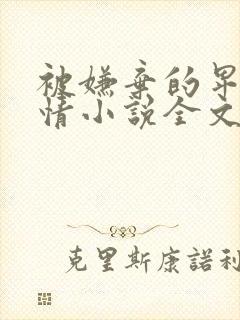 被嫌棄的
情小說全文
克里斯康諾利